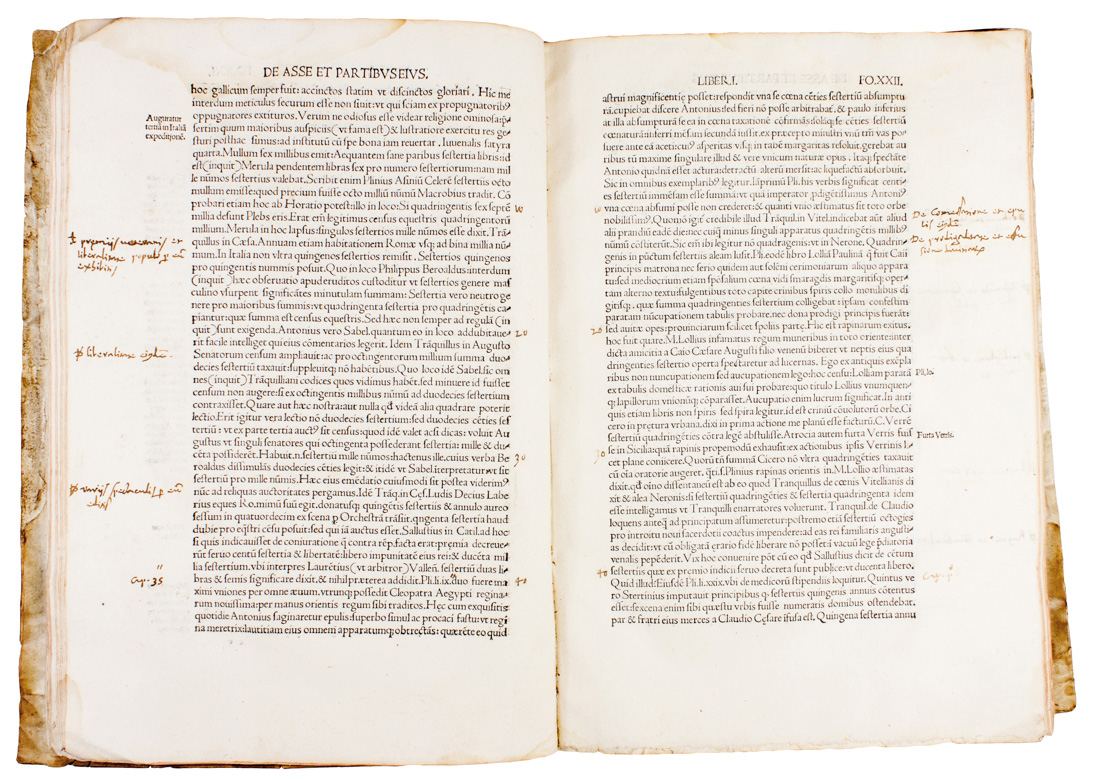 DE ASSE ET PARTIBVS EIVS.
hoc gallicum semper fuit: accinctos statim vt discinctos gloriari. Hic me
interdum meticulus securum esse non sinit: vt qui sciam ex propugnatoribꝰ
oppugnatores extituros. Verum ne odiosus esse videar religione ominosa: p̃
sertim quum maioribus auspiciis (vt fama est) & lustratiore exercitu res ge
sturi posthac simus: ad institutũ cũ spe bona iam reuertar. Iuuenalis satyra
quarta. Mullum sex millibus emit: Aequantem sane paribus sestertia libris: id
est (inquit) Merula pendentem libras sex pro numero sestertiorum: nam mil
le nũmos sestertius valebat. Scribit enim Plinius Asiniũ Celerẽ sestertiis octo
mullum emisse: quod precium fuisse octo milliũ nũmũ Macrobius tradit. Cõ
probari etiam hoc ab Horatio potest: illo in loco: Si quadringentis sex septẽ
milia desunt Plebs eris. Erat em̃ legitimus census equestris quadringentorũ
millium. Merula in hoc lapsus: singulos sestertios mille nũmos esse dixit. Trã
quillus in Cæsa. Annuam etiam habitationem Romæ vsq; ad bina millia nũ
mum. In Italia non vltra quingenos sestertios remisit. Sestertios quingenos
pro quingentis nummis posuit. Quo in loco Philippus Beroaldus: interdum
(inquit) hæc obseruatio apud eruditos custoditur vt sestertios genere mas
culino vsurpent significãtes minutulam summam: Sestertia vero neutro ge
nere pro maioribus summis: vt quadringenta sestertia pro quadringẽtis ca
piantur: quæ summa est census equestris. Sed hæc non semper ad regulã (in
quit) sunt exigenda. Antonius vero Sabel. quantum eo in loco addubitaue
rit facile intelliget qui eius cõmentarios legerit. Idem Trãquillus in Augusto
Senatorum censum ampliauit: ac pro octingentorum millium summa duo
decies sestertiũ taxauit: suppleuitq; nõ habẽtibus. Quo loco idẽ Sabel. sic om
nes (inquit) Trãquilliam codices quos vidimus habẽt. sed minuere id fuisset
censum non augere: si ex octingentis millibus nũmũ ad duodecies sestertium
contraxisset. Quare aut hæc nostra: aut nulla qđ videã alia quadrare poterit
lectio. Erit igitur vera lectio nõ duodecies sestertium: sed duodecies cẽties sef
tertiũ: vt ex parte tertia auctꝰ sit census: quod idẽ valet acsi dicas: voluit Au
gustus vt singuli senatores qui octingenta possederant sestertia: mille & du
cẽta possiderẽt. Habuit. n. sestertiũ mille nũmos: hactenus ille. cuius verba Be
roaldus dissimulãs duodecies cẽties legit: & itidẽ vt Sabel. interpretatur vt sit
sestertiũ pro mille nũmis. Hæc eius emẽdatio cuiusmodi sit postea viderimꝰ
nũc ad reliquas auctoritates pergamus. Idẽ Trãq. in Cęs. Ludis Decius Labe
rius eques Ro. mimũ suũ egit. donatusq; quingẽtis sestertiis & annulo aureo
sessum in quatuordecim ex scena ꝑ Orchestrã trãsiit. qngenta sestertia haud
dubie pro eq̃stri cẽsu posuit: sed qui iã auctus esset. Salustius in Catil. ad hoc
si quis indicauisset de coniuratione q̃ contra rẽp. facta erat: premia decreue
rũt seruo centũ sestertia & libertatẽ: libero impunitatẽ eius rei: & ducẽta mil
lia sestertium. vbi interpres Laurẽtius (vt arbitror) Vallen̄. sestertiũ duas li
bras & semis significare dixit. & nihil præterea addidit. Pli. li. ix. duo fuere ma
ximi vniones per omne æuum. vtrunq; possedit Cleopatra Aegypti regina
rum nouissima: per manus orientis regum sibi traditos. Hęc cum exquisitis
quotidie Antonius saginaretur epulis: superbo simul ac procaci fastu: vt regi
na meretrix: lautitiam eius omnem apparatumq; obtrectãs: quærẽte eo quid
Auguratur
tertiã in Italiã
expeditionẽ.
10
20
30
40
Cap. 35
LIBER. I. FO. XXII.
astrui magnificentię posset: respondit vna se cœna cẽties sestertiũ absumptu
rã. cupiebat discere Antonius: sed fieri nõ posse arbitrabat̃. & paulo inferius
at illa absumpturã se ea in cœna taxationẽ cõfirmãs: solãq; se cẽties sestertiũ
cœnaturã: inferri mẽsam secundã iussit. ex præcepto ministri vnũ tm̃ vas po
suere ante eã aceti: cuiꝰ asperitas visq; in tabẽ margaritas resoluit. gerebat au
ribus tũ maxime singulare illud & vere vnicum naturæ opus. itaq; spectãte
Antonio quidnã esset actura: detractũ alterũ mersit: ac liquefactũ absorbuit.
Sic in omnibus exemplaribꝰ legitur. Iã primũ Pli. his verbis significat centi
es sestertiũ immẽsam esse summã: vt qua imperator ꝓdigẽtissimus Antoniꝰ
vna cœna absumi posse non crederet: & quanti vnio æstimatus sit toto orbe
nobilissimꝰ. Quomõ igit̃ credibile illud Trãquil. in Vitel. indicebat aũt aliud
alii prandiũ eadẽ die: nec cuiq̃ minus singuli apparatus quadringẽtis millibꝰ
nũmũ cõstiterũt. Sic em̃ ibi legitur nõ quadragenis: vt in Nerone. Quadrin
genis in pũctum sestertiis aleam lusit. Pli. eodẽ libro Lolliã Paulinã q̃ fuit Caii
principis matrona nec serio quidem aut solẽni cerimoniarum aliquo appara
tu: sed mediocrium etiam spõsalium cœna vidi smaragdis margaritisq; oper
tam alterno textu: fulgentibus toto capite crinibus spiris collo monilibus di
gitisq;. quæ summa quadringenties sestertium colligebat: ipsam confestim
paratam nũcupationem tabulis probare. nec dona prodigi principis fuerãt:
sed auitæ opes: prouinciarum scilicet spoliis partę. Hic est rapinarum exitus.
hoc fuit quare. M. Lollius infamatus regum muneribus in toto oriente: inter
dicta amicitia a Caio Cæsare Augusti filio venenũ biberet vt neptis eius qua
dringenties sestertio operta spectaretur ad lucernas. Ego ex antiquis exẽpla
ribus non nuncupationem sed aucupationem lego: hoc censu: Lolliam paratã
ex tabulis domesticæ rationis aui sui probare: quo titulo Lollius vnumquen
q; lapillorum vnionũq; cõparasset. Aucupatio enim lucrum significat. In anti
quis etiam libris non spiris sed spira legitur. id est criniũ cõuolutorũ orbe. Ci
cero in prętura vrbana. dixi in prima actione me planũ esse facturũ. C. Verrẽ
sestertiũ quadringẽties cõtra legẽ abstulisse. Atrocia autem furta Verris fuisse
in Sicilia: quã rapinis propemodũ exhausit: ex actionibus ipsis Verrinis l
cet plane coniicere. Quorũ tm̃ summã Cicero nõ vltra quadringẽties taxauit
cũ oĩa oratorie augeret. q̃ti. s. Plinius rapinas orientis in. M. Lollio æstimatas
dixit. qđ oĩno dissentaneũ est ab eo quod Tranquillus de cœnis Vitellianis di
xit & alea Neronis: si sestertiũ quadringẽtis & sestertia quadringenta idem
esse intelligamus vt Tranquilli enarratores voluerunt. Tranquil. de Claudio
loquens anteq̃ ad principatum assumeretur: postremo etiã sestertiũ octogies
pro introitu noui sacerdotii coactus impendere: ad eas rei familiaris angusti
as decidit: vt cũ obligatã ærario fidẽ liberare nõ posset: ĩ vacuũ lege p̃diatoria
venalis pepẽderit. Vix hoc conuenire põt cũ eo qđ Sallustius dicit de cẽtum
sestertiis quæ ex premio indicii seruo decreta sunt publice: vt ducenta libero.
Quid illud: Eiusdẽ Pli. li. xxix. vbi de medicorũ stipendiis loquitur. Quintus ve
ro Stertinius imputauit principibus q; sestertiis quingenis annuis cõtentus
esset: sex cena enim sibi quæstu vrbis fuisse numeratis domibus ostendebat.
par & fratri eius merces a Claudio Cęsare ĩfusa est. Quingena sestertia annu
Pli. lo.
Furta Verris.
10
20
30
40